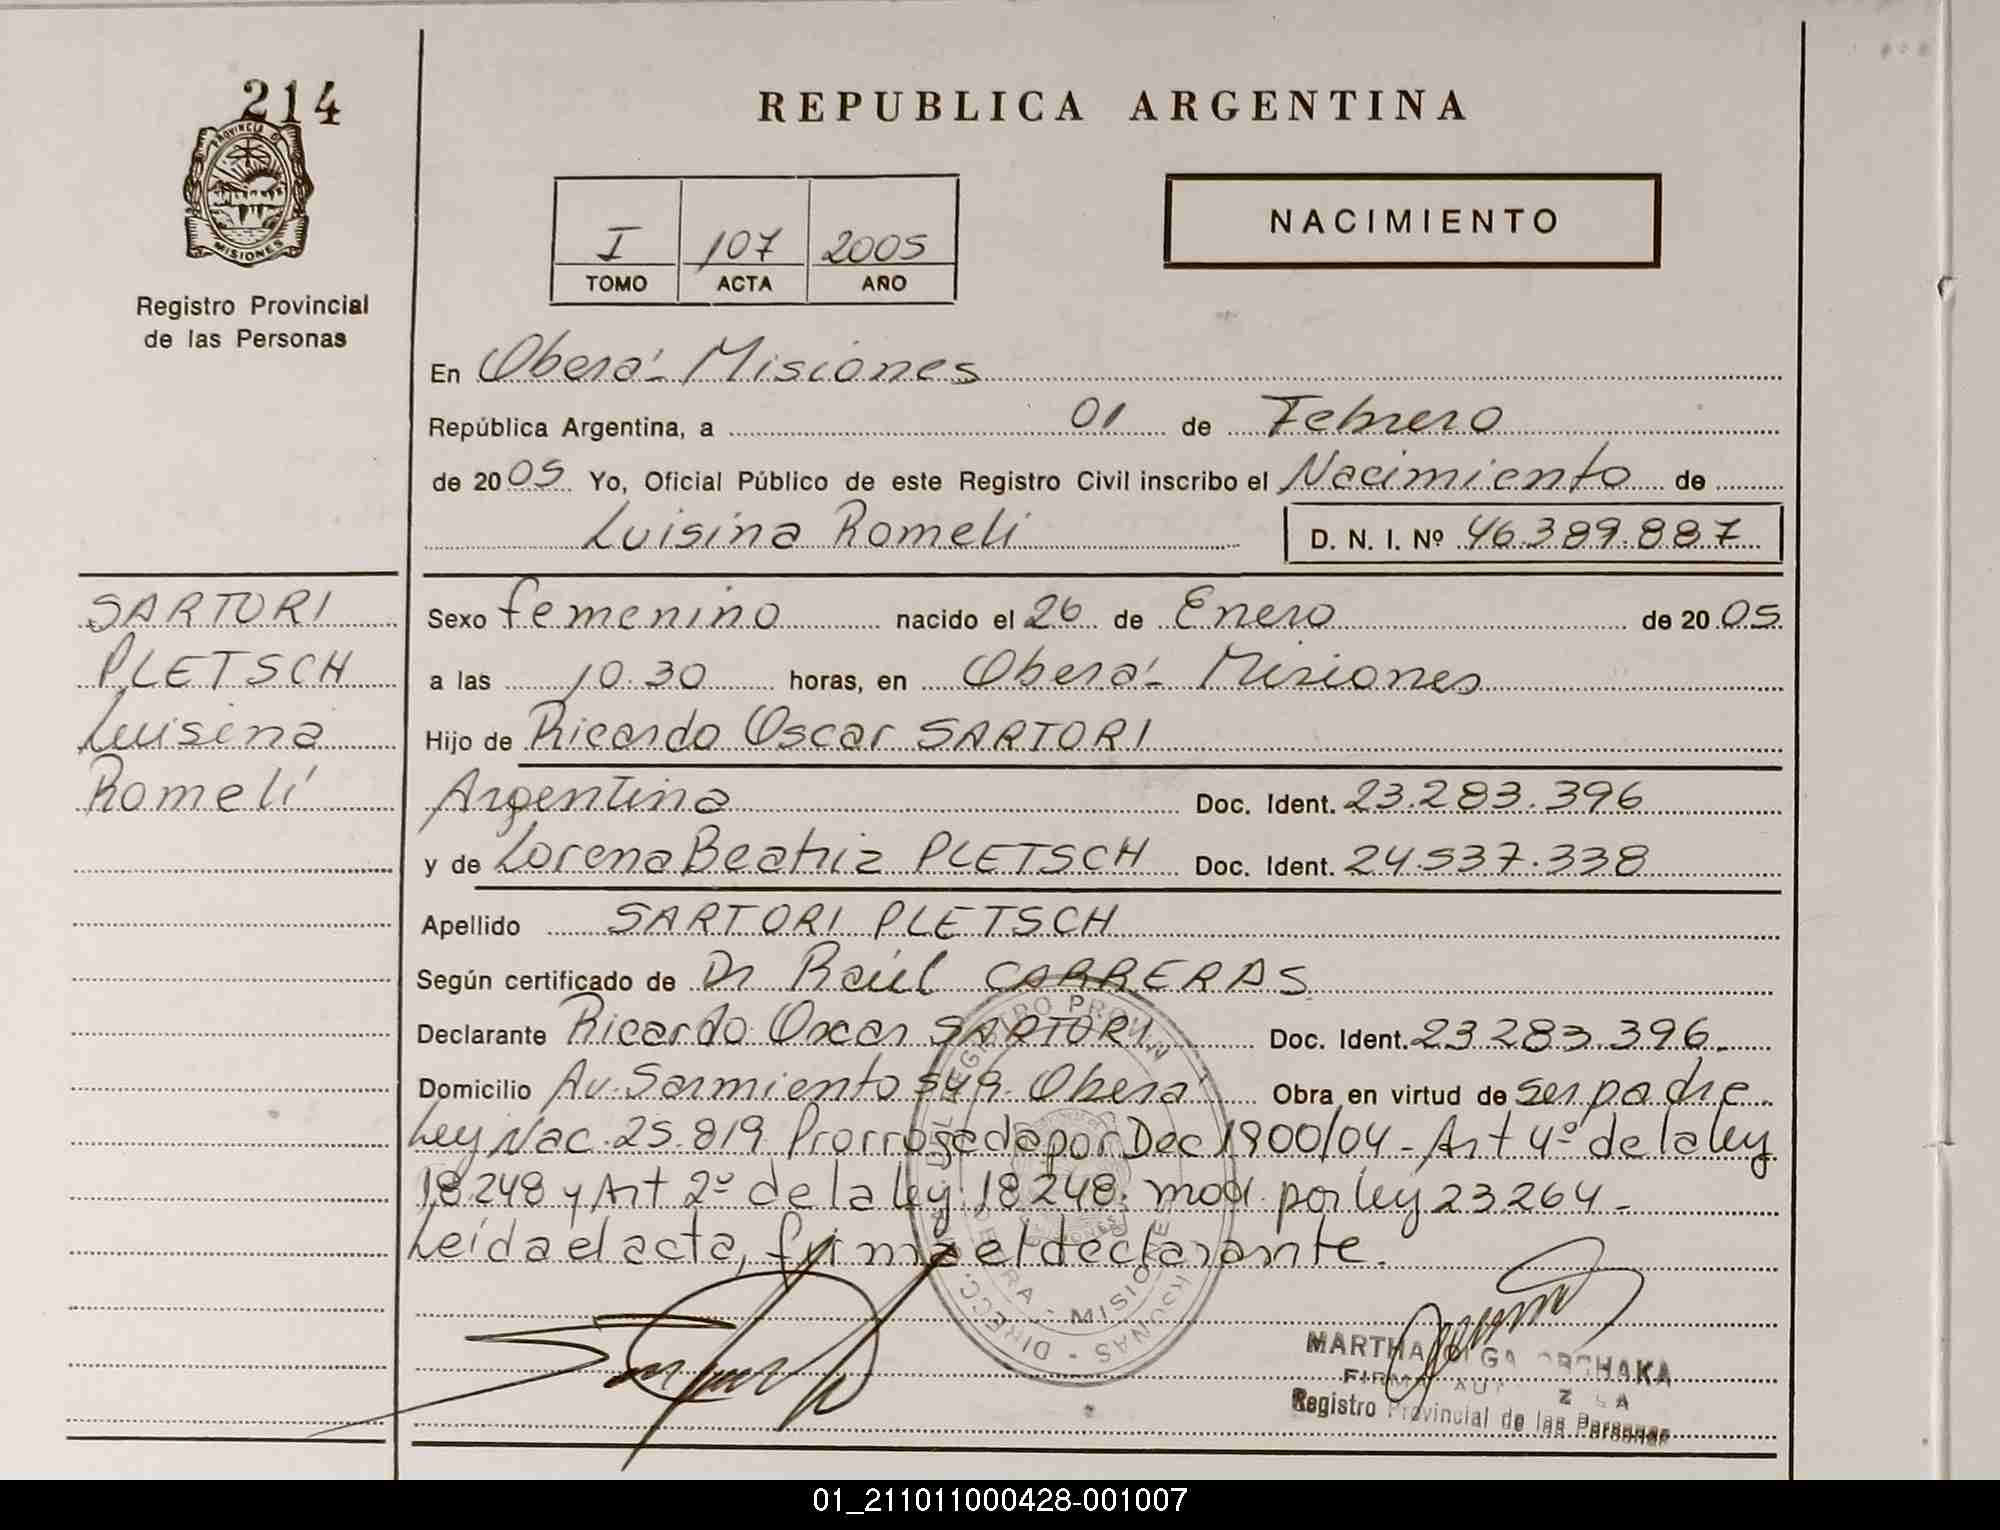 214
REPUBLICA ARGENTINA
PROVINCIA DE
MISIONES
Registro Provincial
de las Personas
I 107 2005
TOMO ACTA AÑO
NACIMIENTO
En Oberá - Misiones
República Argentina, a 01 de Febrero
de 2005 Yo, Oficial Público de este Registro Civil inscribo el Nacimiento de
Luisina Romeli D. N. I. Nº 46.389.887
SARTORI
PLETSCH
Luisina
Romelí
Sexo femenino nacido el 26 de Enero de 2005
a las 10.30 horas, en Oberá - Misiones
Hijo de Ricardo Oscar SARTORI
Argentina Doc. Ident. 23.283.396
y de Lorena Beatriz PLETSCH Doc. Ident. 24.537.338
Apellido SARTORI PLETSCH
Según certificado de Dr Raúl CARRERAS
Declarante Ricardo Oscar SARTORI Doc. Ident. 23 283.396.
Domicilio Av. Sarmiento 549. Oberá Obra en virtud de ser padre.
Ley Nac. 25.819 Prorrogada por Dec 1900/04 - Art 4º de la ley
18.248 y Art 2º de la ley 18248. mod. por ley 23264 -
Leída el acta, firma el declarante.
MARTHA OLGA
FIRMA
Registro Provincial de las Personas
01_211011000428-001007